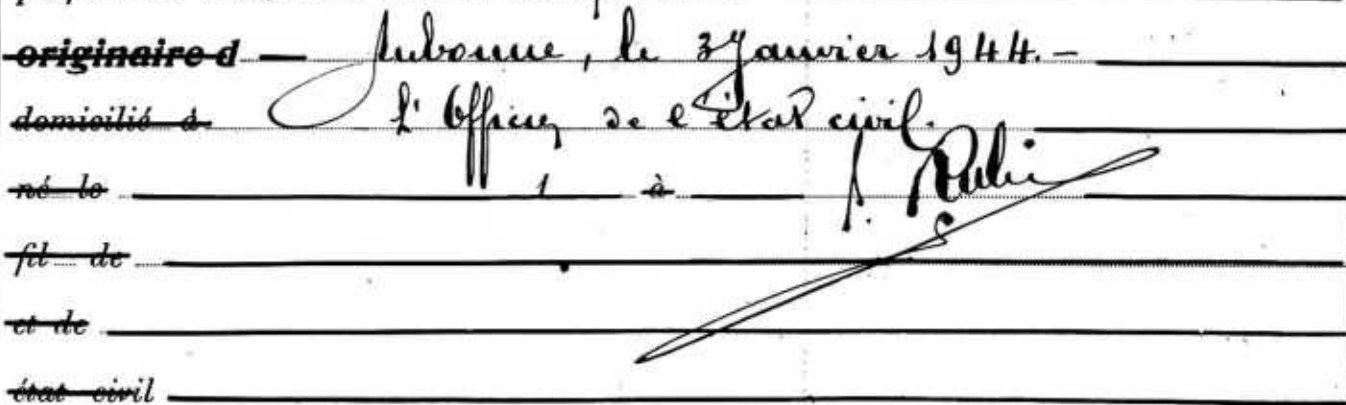 originaire d Aubonne, le 3 Janvier 1944. -
domicilié à L'Officier de l'état civil.
né le 1 à
fil de
et de
état civil